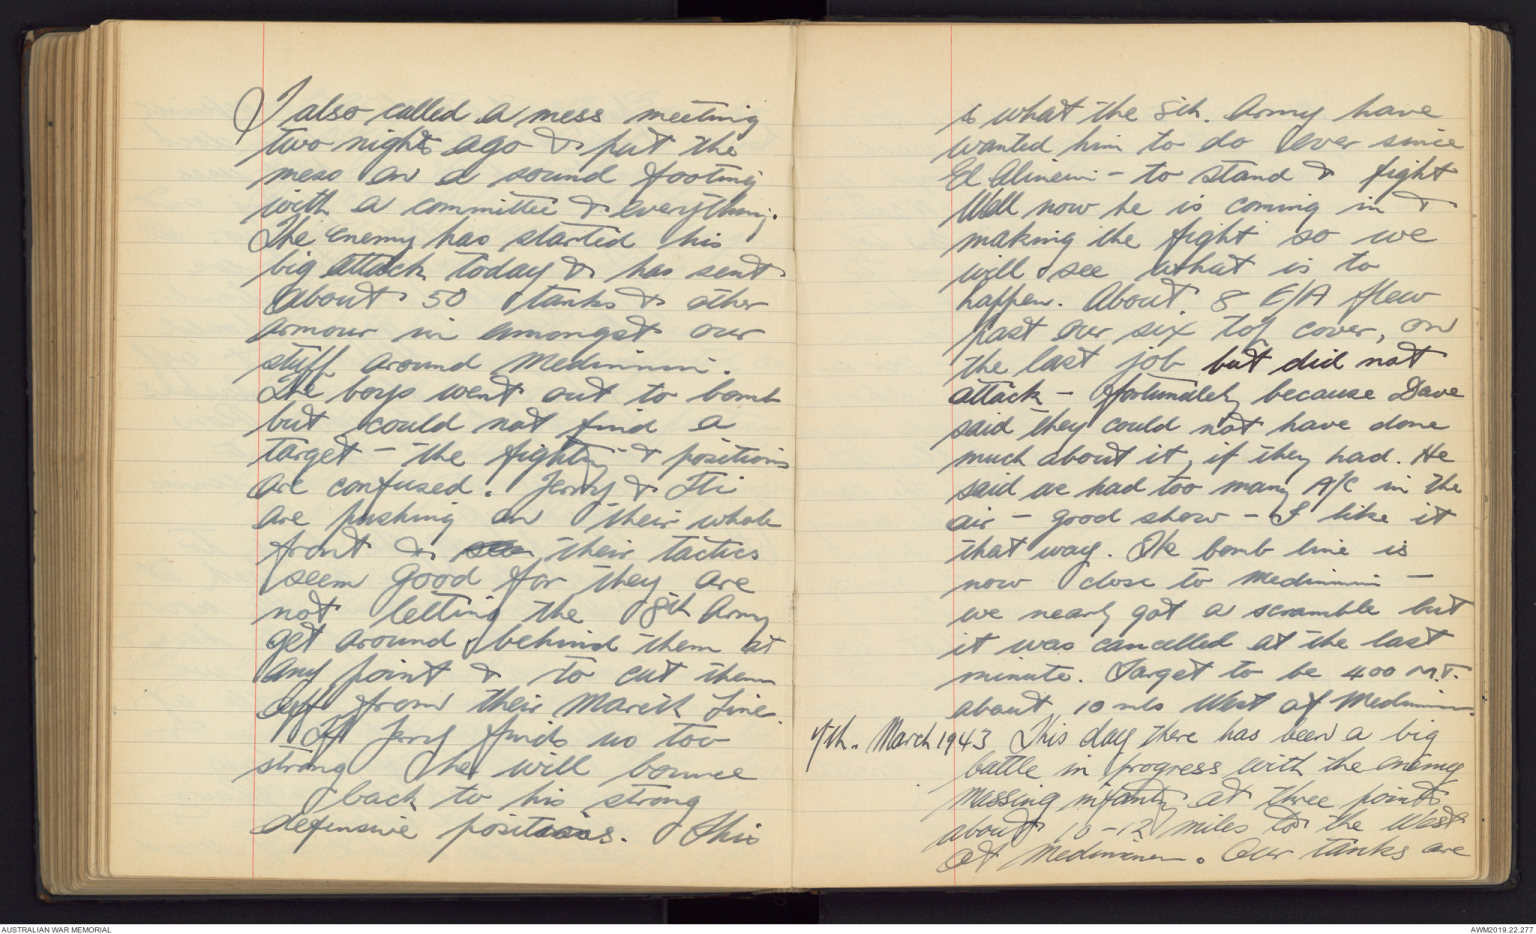 I also called a mess meeting
two nights ago & put the
mess on a sound footing
with a committee & everything.
The enemy has started his
big attack today & has sent
about 50 tanks & other
armour in amongst our
stuff around Medinnini.
The boys went out to bomb
but could not find a
target - the fighting & positions
are confused. Jerry & Iti
are pushing on their whole
front & see their tactics
seem good for they are
not letting the 8th Army
get around behind them at
any point & to cut them
off from their Mareth Line.
If Jerry finds us too
strong he will bounce
back to his strong
defensive positions. This
is what the 8th. Army have
wanted him to do ever since
El Alinein - to stand & fight
Well now he is coming in &
making the fight so we
will see what is to
happen. About 8 E/A flew
past our six top cover, on
the last job but did not
attack - fortunately because Dave
said they could not have done
much about it, if they had. He
said we had too many A/C in the
air - good show - I like it
that way. The bomb line is
now close to Medinnini -
we nearly got a scramble but
it was cancelled at the last
minute. Target to be 400 M.T.
about 10 mls West of Medinnin.
7th. March 1943 This day there has been a big
battle in progress with the enemy
massing infantry at three points
about 10-12 miles to the West
of Medinnin. Our tanks are
AUSTRALIAN WAR MEMORIAL
AWM2019.22.277